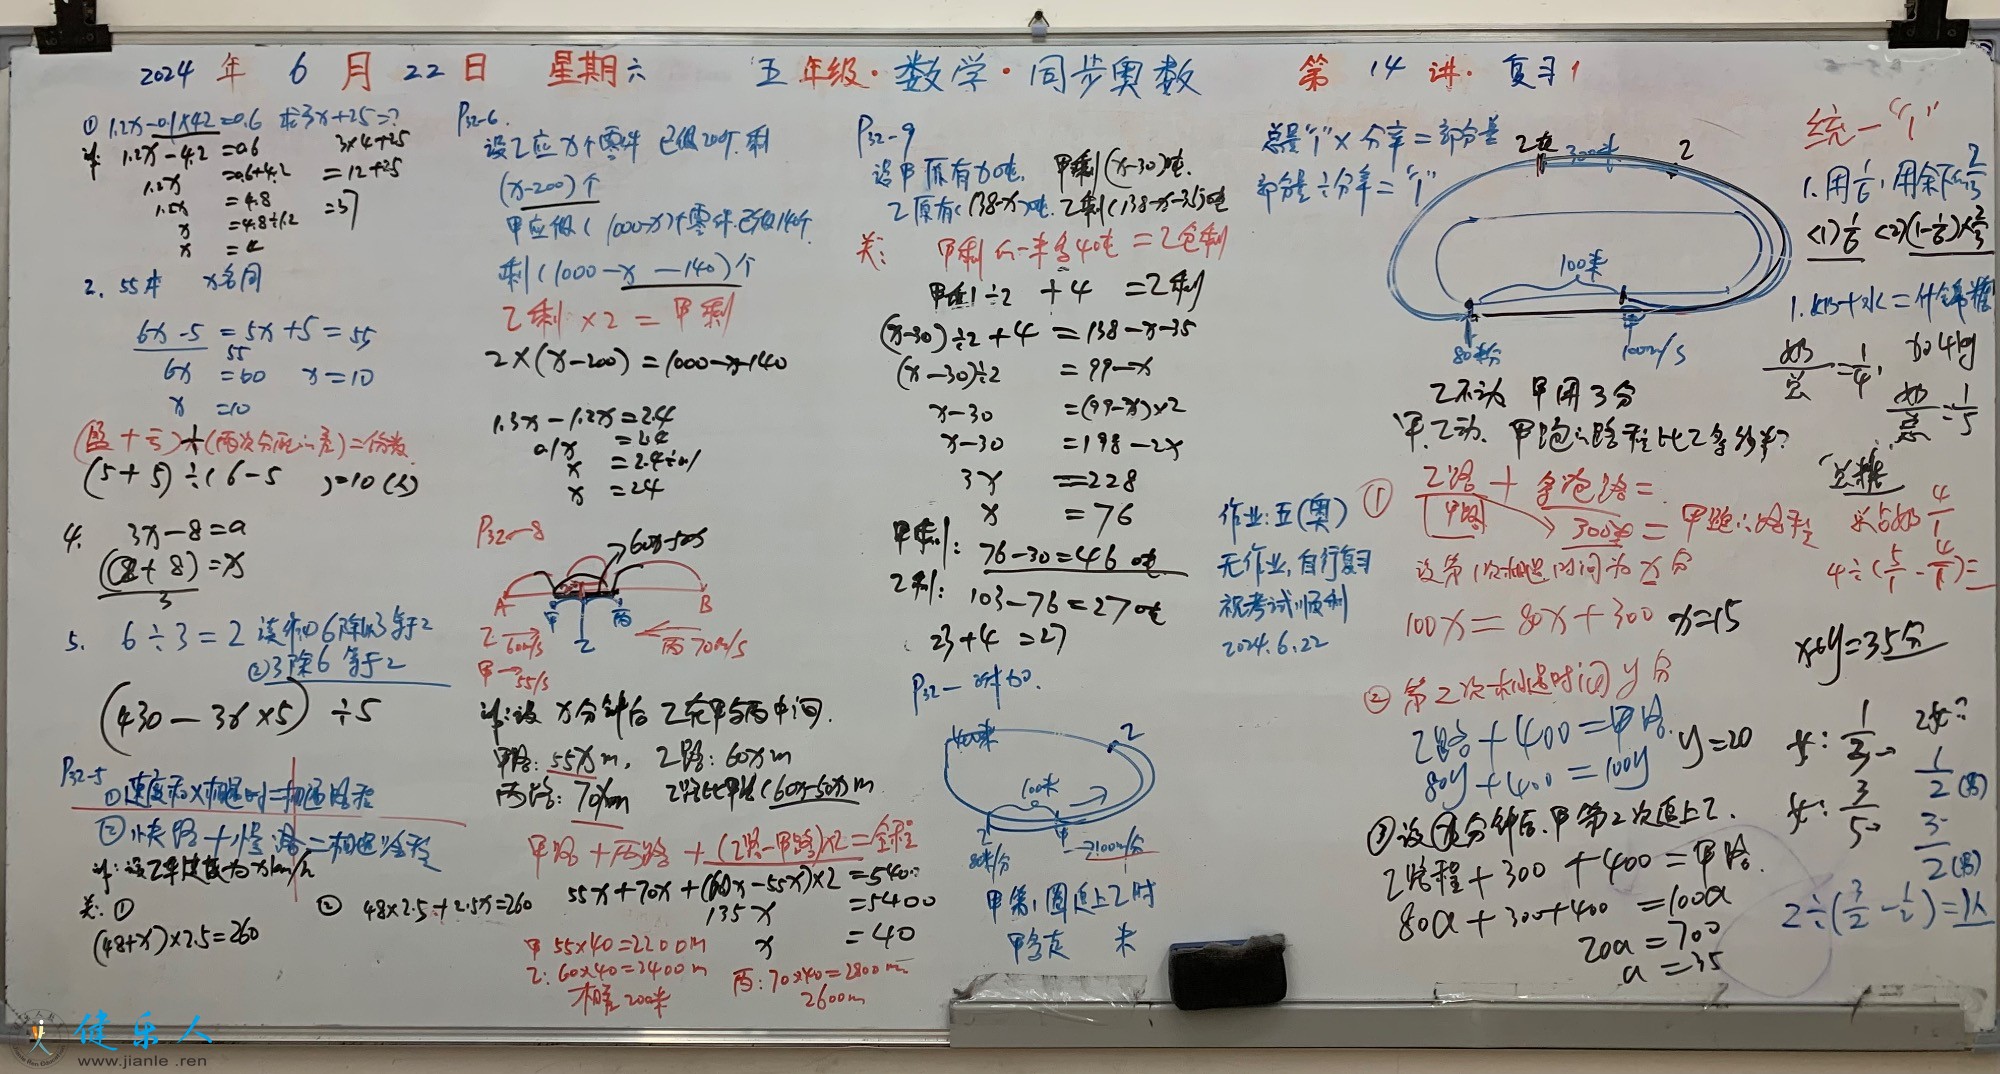 2024 年 6 月 22 日 星期六 五年级·数学·同步奥数 第 14 讲·复习1
① 1.2x-0.1×42=0.6 求3x+25=?
1.2x-4.2=0.6
1.2x=0.6+4.2
1.2x=4.8
x=4.8÷1.2
x=4
3×4+25
=12+25
=37
2. 55本 x名同
6x-5=5x+5=55
55
6x=60 x=10
x=10
(盈+亏)÷(两次分配的差)=份数
(5+5)÷(6-5)=10(人)
4. 3x-8=a
(a+8)=x
3
5. 6÷3=2 读作①6除以3等于2
②3除6等于2
(430-3x×5)÷5
P32-5
①速度和×相遇时=相遇路程
②快路+慢路=相遇路程
设乙车速度为xkm/h
关:①
(48+x)×2.5=260
② 48×2.5+2.5x=260
P32-6.
设乙应x个零件 已做200个.剩
(x-200)个
甲应做(1000-x)个零件.已做140个.
剩(1000-x-140)个
乙剩×2=甲剩
2×(x-200)=1000-x-140
1.3x-1.2x=2.4
0.1x=2.4
x=2.4÷0.1
x=24
P32-8
60x-50x
A 甲 乙 丙 B
乙 60m/s
丙 70m/s
甲→55/s
设x分钟后乙在甲与丙中间.
甲路:55xm, 乙路:60xm
丙路:70xm 乙路比甲路(60x-50x)m
甲路+丙路+(乙路-甲路)×2=全程
55x+70x+(60x-55x)×2=5400
135x=5400
x=40
甲 55×40=2200m
乙:60×40=2400m
相差200米
丙:70×40=2800m
2600m
P32-9
设甲原有x吨, 甲剩(x-30)吨.
乙原有(138-x)吨. 乙剩(138-x-35)吨
关: 甲剩的一半多4吨=乙仓剩
甲剩÷2+4=乙剩
(x-30)÷2+4=138-x-35
(x-30)÷2=99-x
x-30=(99-x)×2
x-30=198-2x
3x=228
x=76
甲剩:76-30=46吨
乙剩:103-76=27吨
23+4=27
P32-附加.
400米
乙
100米
乙 甲
80米/分
100m/分
甲第1圈追上乙时
甲多走 米
总量"1"×分率=部分量
部分量÷分率="1"
300米
乙
100米
80米/分
100m/s
乙不动 甲用3分
甲.乙动. 甲跑的路程比乙多多少米?
① 乙路+多跑路=
甲路 300 = 甲跑的路程
设第1次相遇时间为x分
100x=80x+300 x=15
② 第2次相遇时间y分
乙路+400=甲路.
80y+400=100y y=20
x+y=35分
③设a分钟后.甲第2次追上乙.
乙路程+300+400=甲路.
80a+300+400=100a
20a=700
a=35
作业:五(奥)
无作业,自行复习
祝考试顺利
2024.6.22
统一"1"
1.用1/6,用余下的2/3
<1>1/6 <2>(1-1/6)×2/3
1.奶+水=什锦糖
奶/总=1/4, 加4kg
奶/总=1/5
4÷(5/1-4/1)=
女:1/3→ 2女?
1/2(男)
女:3/5→ 3/2(男)
2÷(3/2-1/2)=1人
健乐人
www.jianle.ren